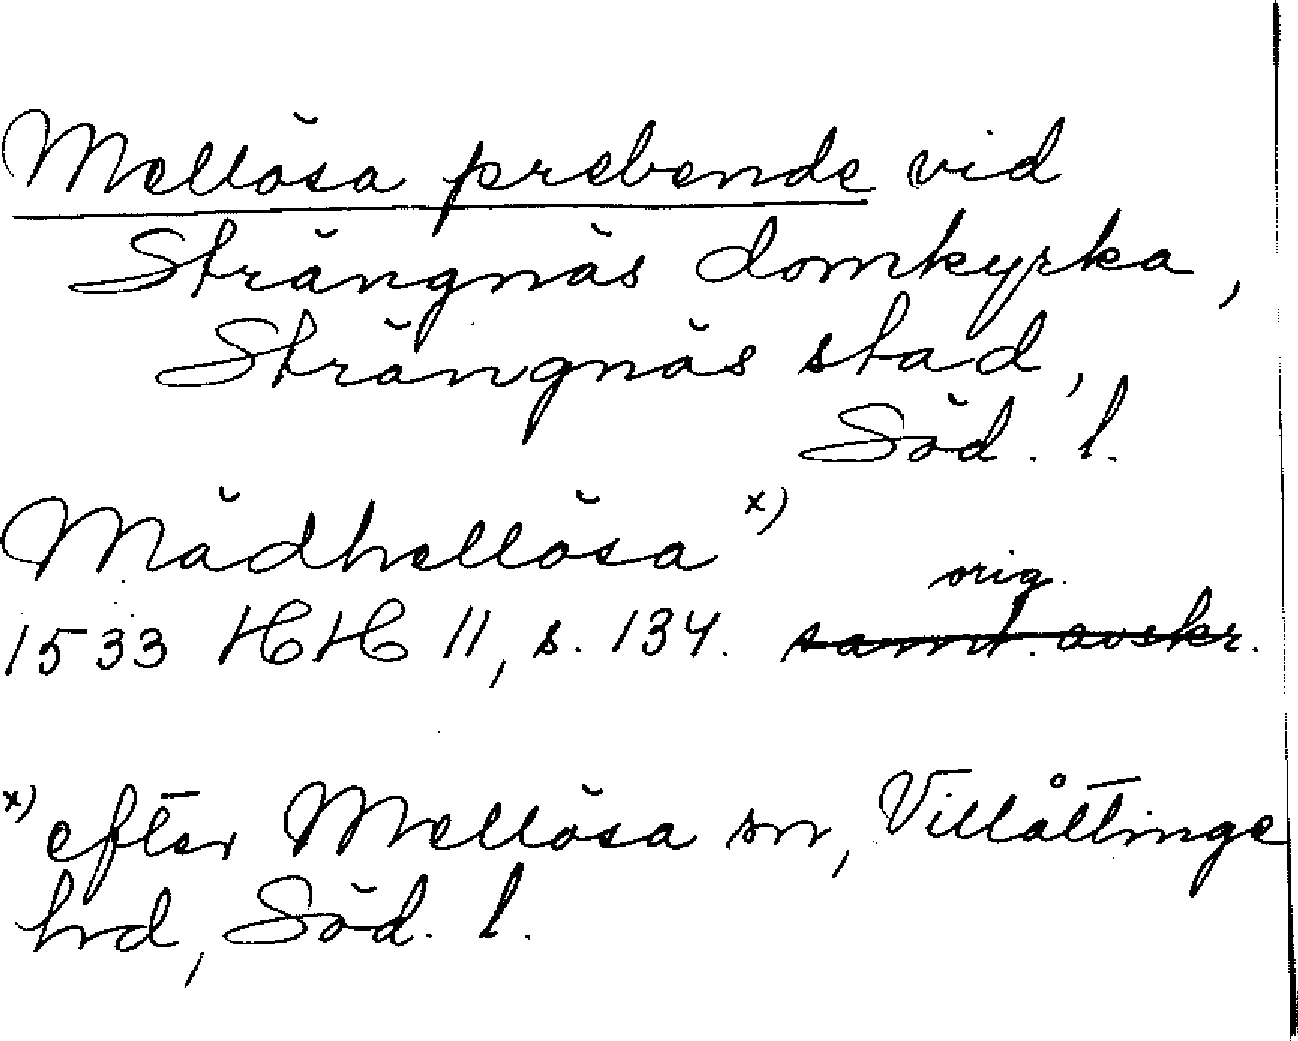 Mellösa prebende vid
Strängnäs domkyrka,
Strängnäs stad,
Söd. l.
Mädhellösa x)
orig.
1533 HH 11, s. 134. samt. avskr.
x) efter Mellösa sn, Villåttinge
hd, Söd. l.